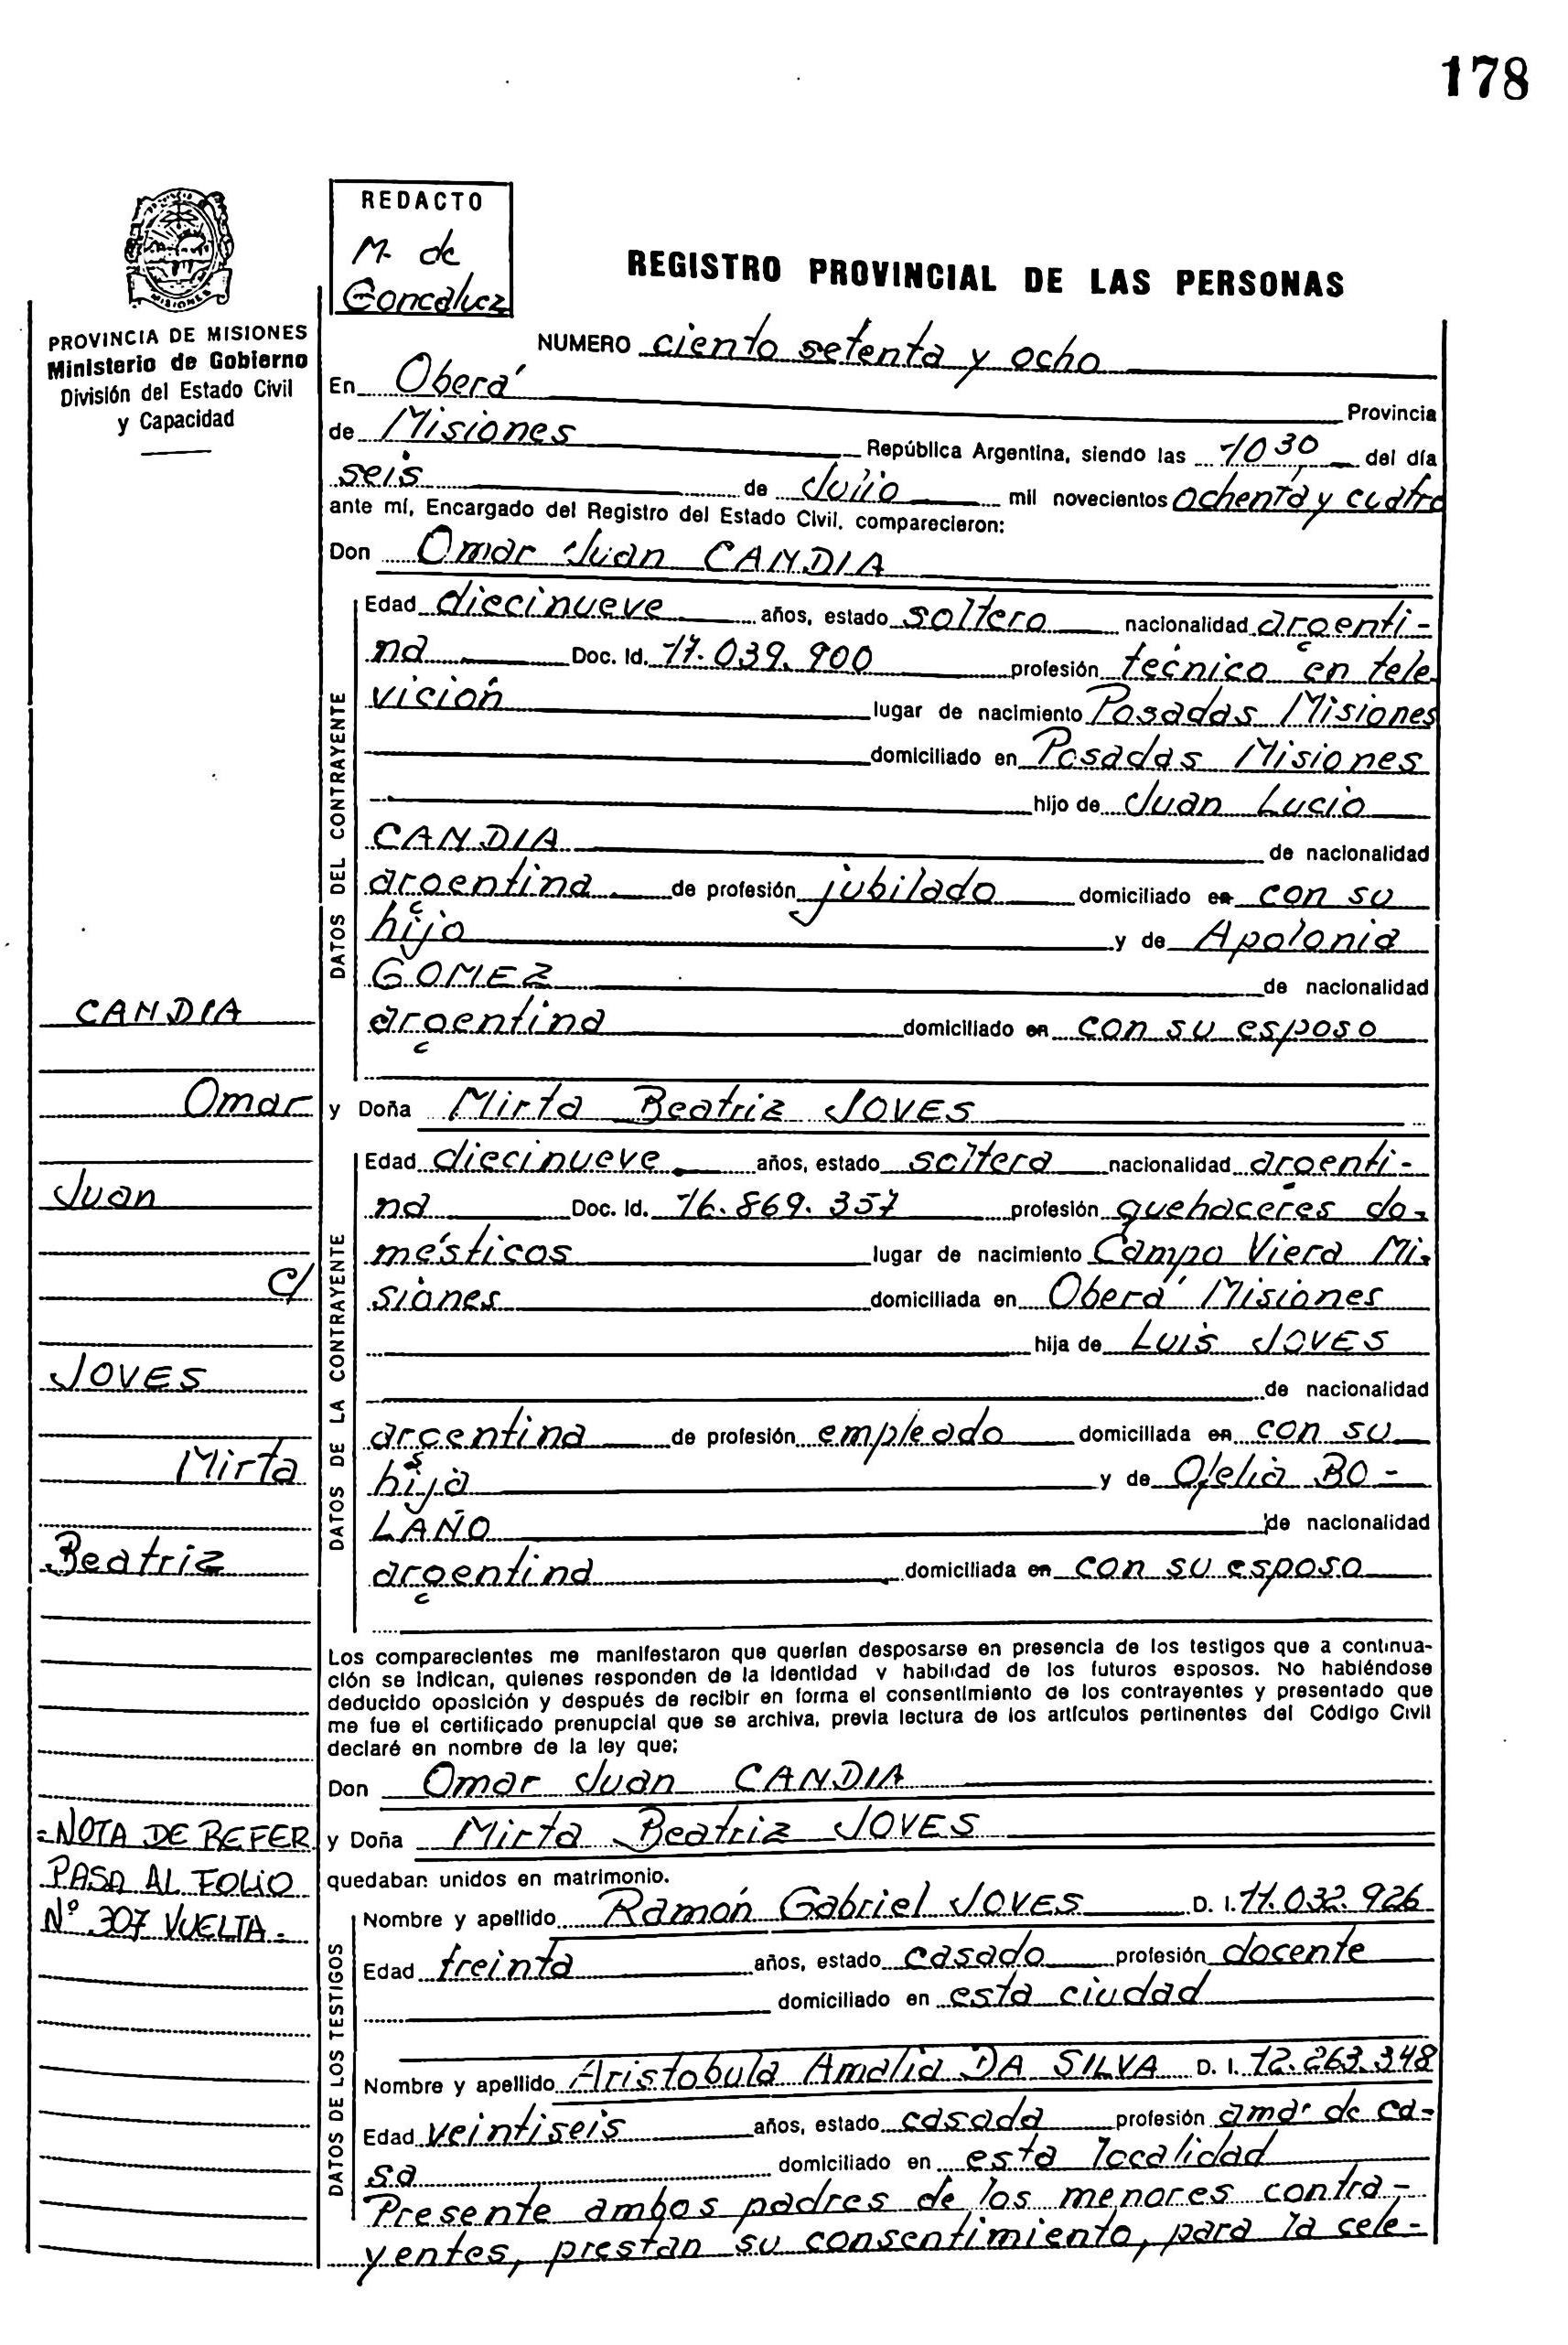 178
REDACTO
M. de
Goncalvez
REGISTRO PROVINCIAL DE LAS PERSONAS
MISIONES
PROVINCIA DE MISIONES
Ministerio de Gobierno
División del Estado Civil
y Capacidad
NUMERO ciento setenta y ocho
En Oberá Provincia
de Misiones República Argentina, siendo las 1030 del día
seis de Julio mil novecientos ochenta y cuatro
ante mí, Encargado del Registro del Estado Civil, comparecieron:
Don Omar Juan CANDIA
DATOS DEL CONTRAYENTE
Edad diecinueve años, estado soltero nacionalidad argenti-
na Doc. Id. 17.039.900 profesión técnico en tele
visión lugar de nacimiento Posadas Misiones
domiciliado en Posadas Misiones
hijo de Juan Lucio
CANDIA de nacionalidad
argentina de profesión jubilado domiciliado en con su
hijo y de Apolonia
GOMEZ de nacionalidad
argentina domiciliado en con su esposo
y Doña Mirta Beatriz JOVES
DATOS DE LA CONTRAYENTE
Edad diecinueve años, estado soltera nacionalidad argenti-
na Doc. Id. 16.869.357 profesión quehaceres do-
mésticos lugar de nacimiento Campo Viera Mi-
siones domiciliada en Oberá Misiones
hija de Luis JOVES
de nacionalidad
argentina de profesión empleado domiciliada en con su
hija y de Ofelia BO-
LAÑO de nacionalidad
argentina domiciliada en con su esposo
CANDIA
Omar
Juan
c/
JOVES
Mirta
Beatriz
Los comparecientes me manifestaron que querían desposarse en presencia de los testigos que a continua-
ción se indican, quienes responden de la identidad y habilidad de los futuros esposos. No habiéndose
deducido oposición y después de recibir en forma el consentimiento de los contrayentes y presentado que
me fue el certificado prenupcial que se archiva, previa lectura de los artículos pertinentes del Código Civil
declaré en nombre de la ley que:
Don Omar Juan CANDIA
y Doña Mirta Beatriz JOVES
quedaban unidos en matrimonio.
=NOTA DE REFER
PASA AL FOLIO
Nº 307 VUELTA=
DATOS DE LOS TESTIGOS
Nombre y apellido Ramón Gabriel JOVES D. I. 11.032.926
Edad treinta años, estado casado profesión docente
domiciliado en esta ciudad
Nombre y apellido Aristobula Amalia DA SILVA D. I. 12.263.348
Edad veintiseis años, estado casada profesión ama de ca-
sa domiciliado en esta localidad
Presente ambos padres de los menores contra-
yentes, prestan su consentimiento, para la cele-